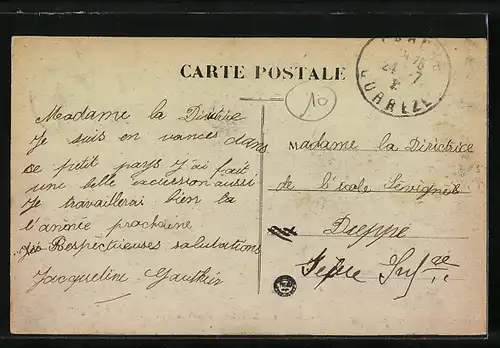 CARTE POSTALE
CORREZE
24 - 7
10
Madame la Dirctrice
Je suis en vances dans
se petit pays J'ai fait
une belle excurssion aussi
Je travaillerai bien la
l'année prochaine
Respectueuses salutations
Jacqueline Gauthier
Madame la Dirictrice
de l'école Sévigné
Dieppe
Seine Infre